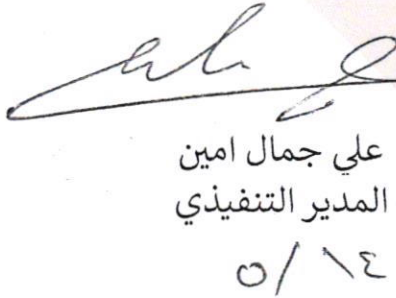 علي جمال امين
المدير التنفيذي
٥/ ١٤